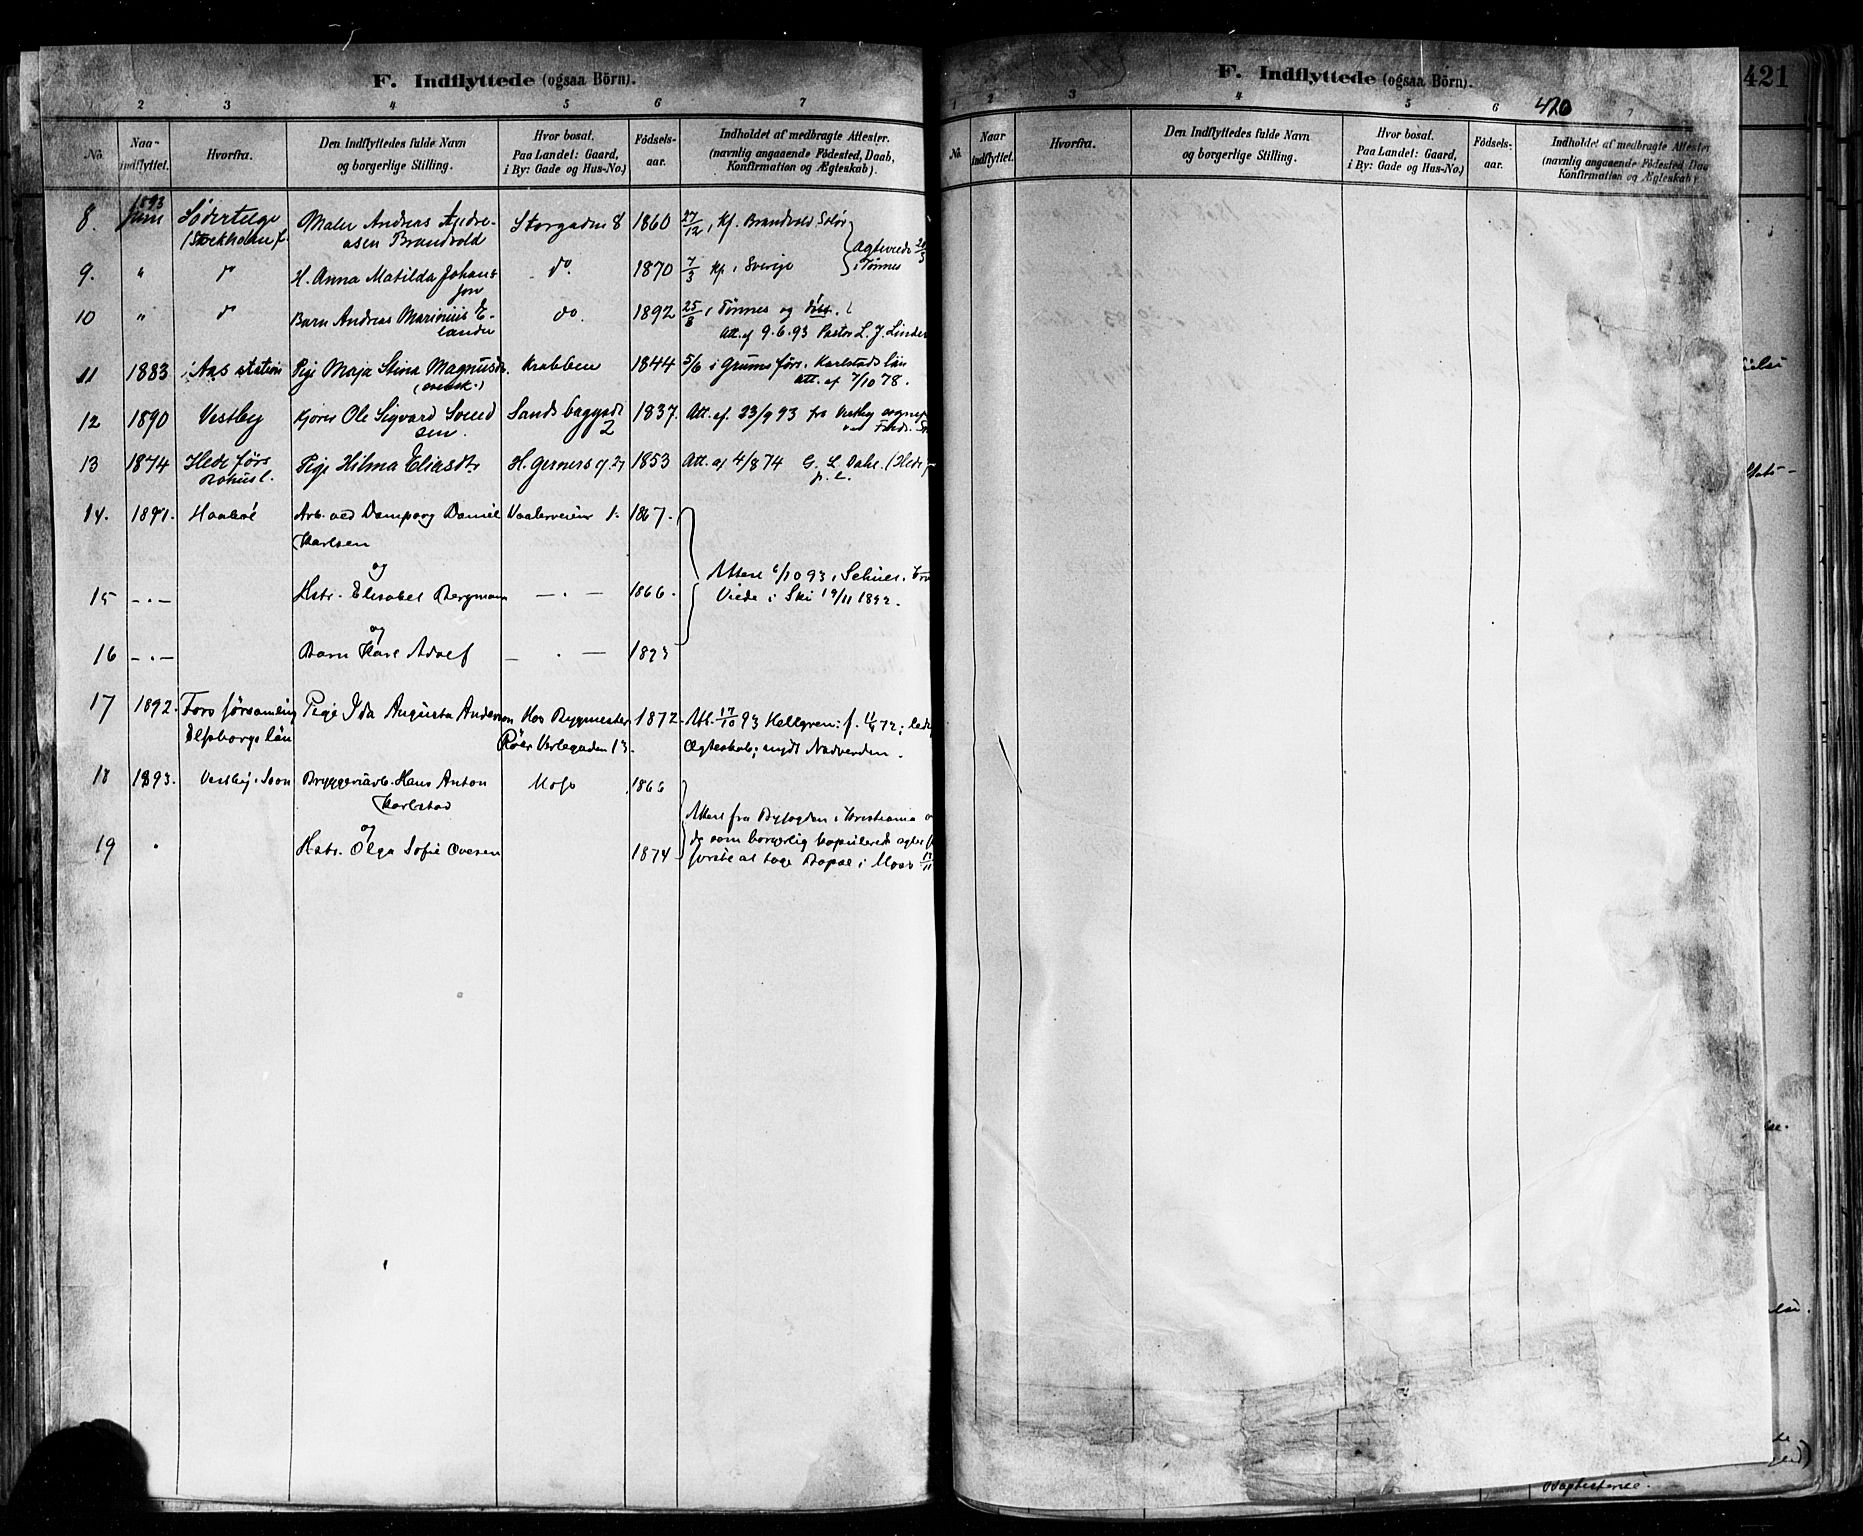 F. Indflyttede (ogsaa Börn).
2 3 4 5 6 7
No. Naar indflyttet. Hvorfra. Den Indflyttedes fulde Navn og borgerlige Stilling. Hvor bosat. Paa Landet: Gaard, i By: Gade og Hus-No.) Födsels-aar. Indholdet af medbragte Attester. (navnlig angaaende Födested, Daab, Konfirmation og Ægteskab).
1893
8. Juni Södertelge Maler Andreas Andre- Storgaden 8 1860 27/12 i Kf. Brandvold Solör
(Stockholm l. asen Brandvold Ægteviede
9. " do H. Anna Matilda Johans do. 1870 7/3 Kf. i Sverige i Tönnes
son
10 " do Barn Andreas Marinius E- do. 1892 25/8 i Tönnes og döbt.
lander Att. af 9.6.93 Pastor L. J. Linder
11 1883 i Aas station Pige Maja Stina Magnusdr. Krabben 1844 5/6 i Grums förs. Karlstads län
(svensk.) Att. af 7/10 78.
12 1890 Vestby Kjörer Ole Sigvard Svend Sandsbaggade 1837. Att. af. 23/9 93 fra Vestby sogne
sen. 2
13 1874 Hede förs Pige Hilma Eliasdtr H. Gerners g. 27 1853 Att. af 4/8 74 G. L. Dahl. (Hede
Bohusl. p. l.
14. 1891. Haaböl Arb. ved Dampsag Daniel Vaalerveien 1. 1867.
Karlsen
og Attest 6/10 93 i Schues.
15 – . – Hstr. Elisabet Bergmann – . – 1866. Viede i Ski 19/11 1892.
og
16 – . – Barn Karl Adolf – . – 1893
17 1892. Fors församling Pige Ida Augusta Anderson Hos Bygmester 1872. Att. 17/10 93 Hellgren: f. 11/4 72; ledig
Elfsborgs län Röer Verlegaden 13. Ægteskab; nydt Nadverden.
18 1893. Vestby i Soon Bryggeriarb. Hans Anton Moss 1866
Karlstad Attest fra Byfogden i Kristiania
og som borgerlig kopulerede
19 . Hstr. Olga Sofie Ovesen 1874 i Moss
F. Indflyttede (ogsaa Börn).
1 2 3 4 5 6 420 7
No. Naar indflyttet. Hvorfra. Den Indflyttedes fulde Navn og borgerlige Stilling. Hvor bosat. Paa Landet: Gaard, i By: Gade og Hus-No.) Födsels-aar. Indholdet af medbragte Attester (navnlig angaaende Födested, Daab, Konfirmation og Ægteskab).
421